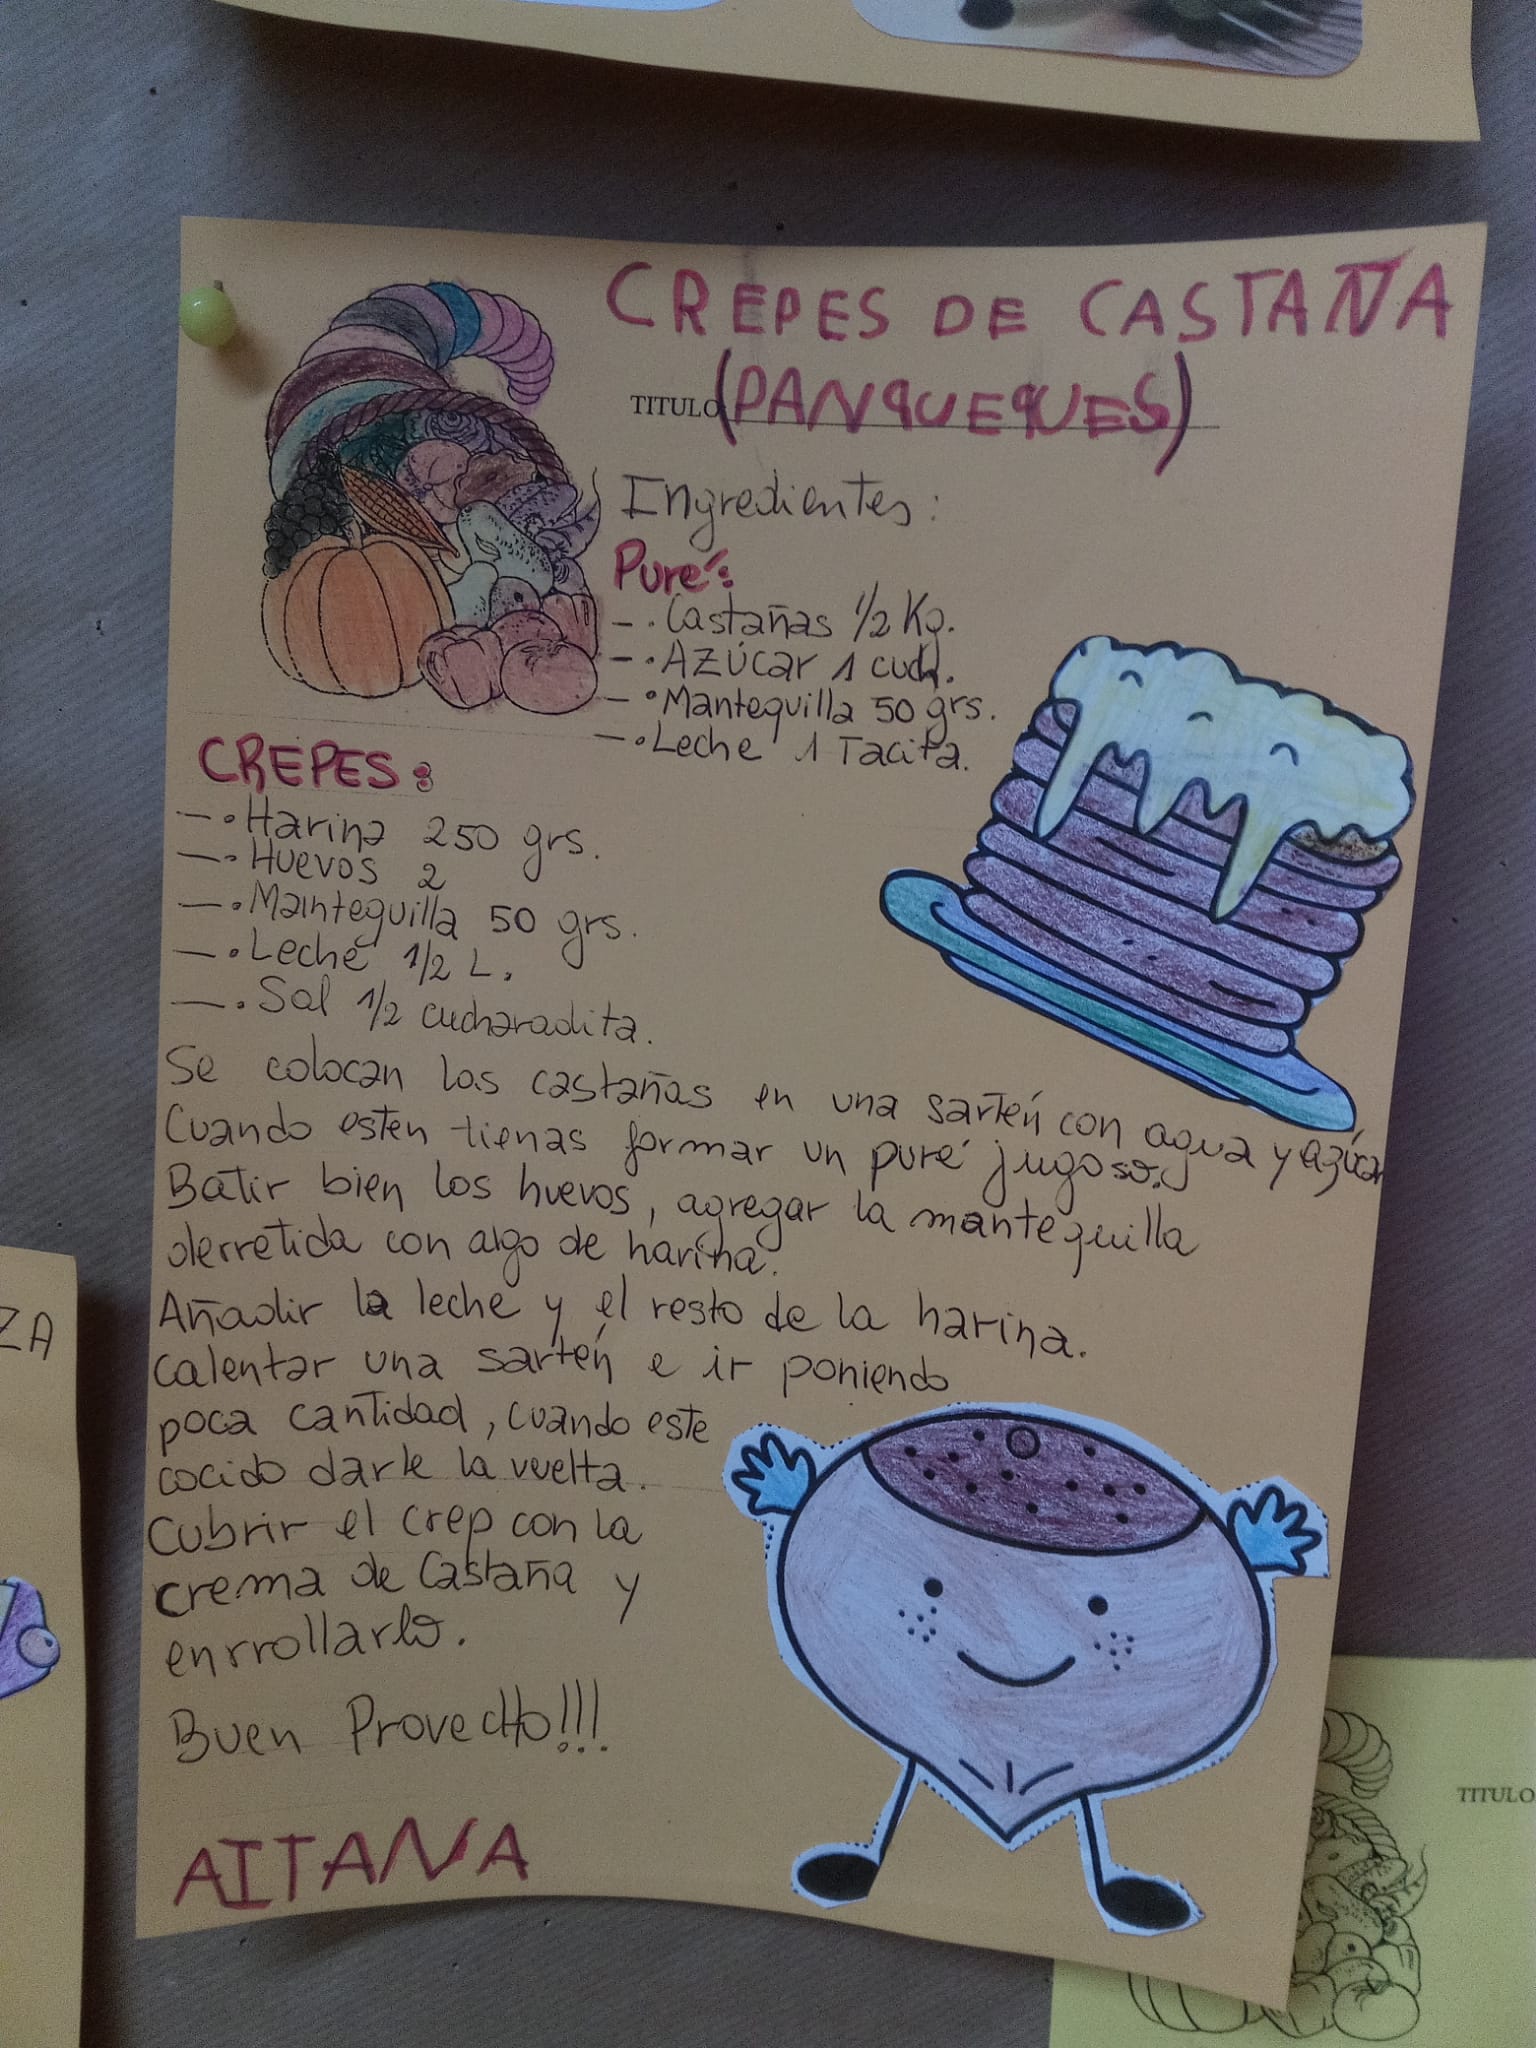 CREPES DE CASTAÑA
TITULO (PANQUEQUES)
Ingredientes:
Puré:
-. Castañas 1/2 Kg.
-. AZÚCAR 1 cuch.
-. Mantequilla 50 grs.
-. Leche 1 Tacita.
CREPES:
-. Harina 250 grs.
-. Huevos 2
-. Mantequilla 50 grs.
-. Leche 1/2 L.
-. Sal 1/2 cucharadita.
Se colocan las castañas en una sartén con agua y azúcar
Cuando esten tienas formar un puré jugoso.
Batir bien los huevos, agregar la mantequilla
derretida con algo de harina.
Añadir la leche y el resto de la harina.
Calentar una sartén e ir poniendo
poca cantidad, cuando este
cocido darle la vuelta.
Cubrir el crep con la
crema de Castaña y
enrrollarlo.
Buen Provecho!!!
AITANA
ZA
TITULO